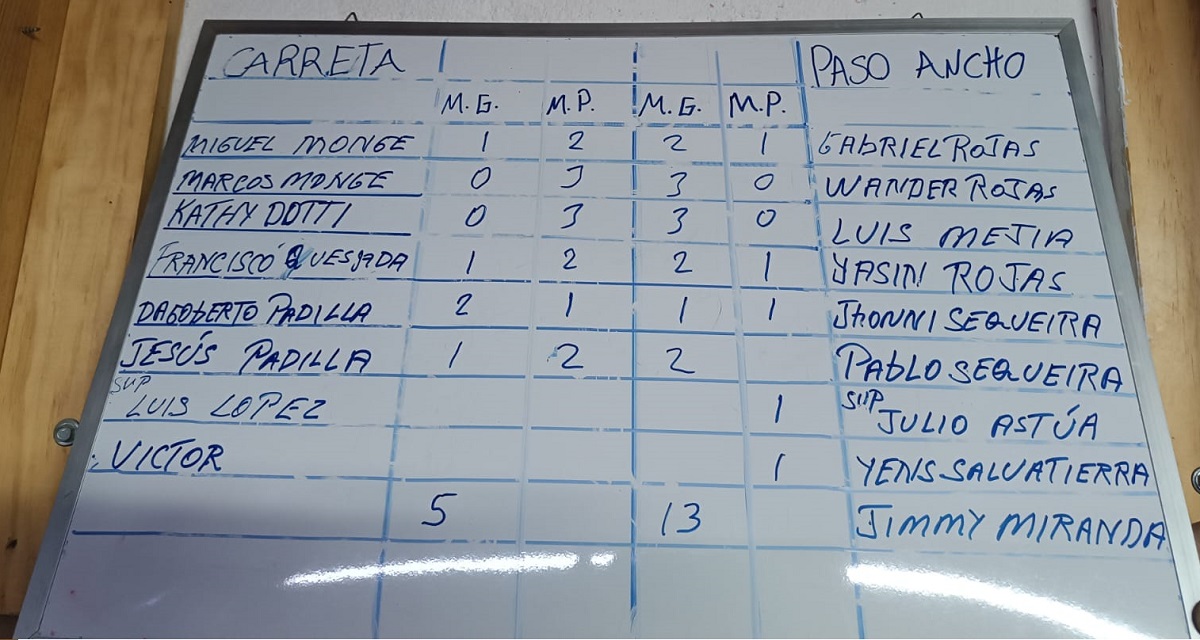 CARRETA PASO ANCHO
M.G. M.P. M.G. M.P.
MIGUEL MONGE 1 2 2 1 GAbRIEL ROJAS
MARCOS MONGE 0 3 3 0 WANDER ROJAS
KATHY DOTTI 0 3 3 0 LUIS MEJIA
FRANCISCO QUESADA 1 2 2 1 YASIN ROJAS
DAGObERTO PADILLA 2 1 1 1 JhONNI SEQUEIRA
JESÚS PADILLA 1 2 2 PAbLO SEQUEIRA
SUP LUIS LOPEZ 1 SUP JULIO ASTÚA
VICTOR 1 YENS SALVATIERRA
5 13 JIMMY MIRANDA